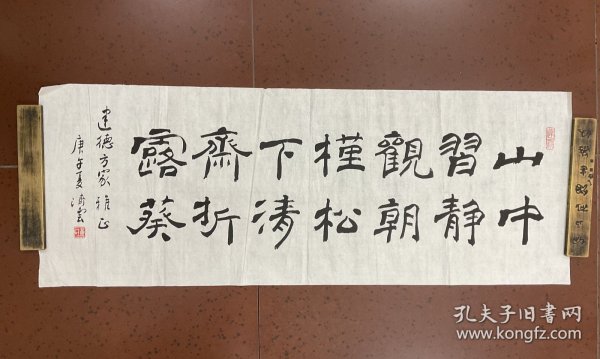 山中
習靜
觀朝
槿松
下清
齋折
露葵
建德方家雅正
庚午夏 清雲
孔夫子旧书网
www.kongfz.com